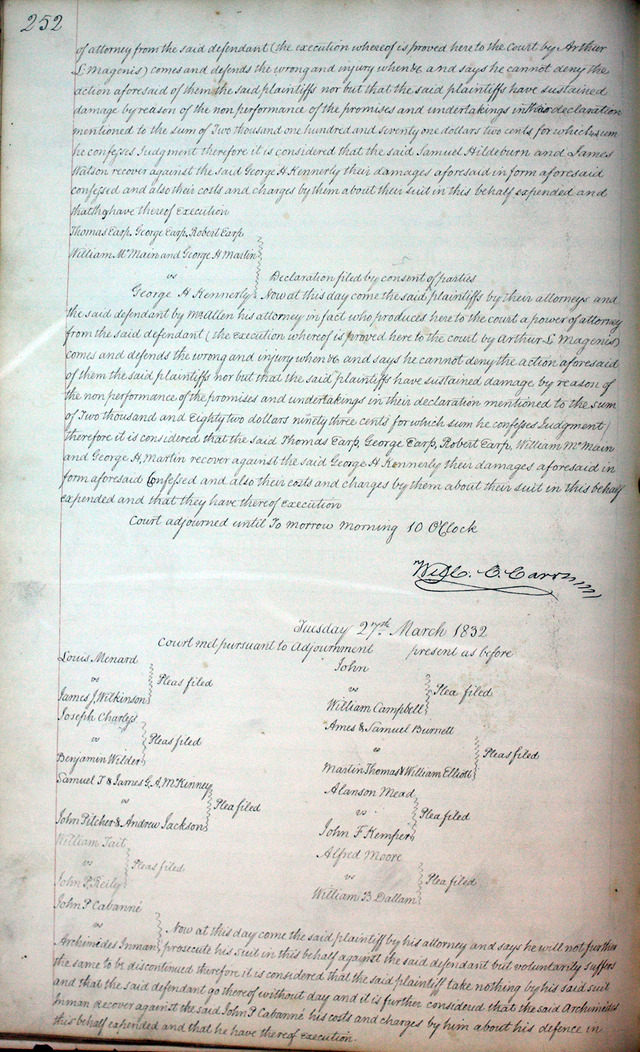 252
of attorney from the said defendant (the execution whereof is proved here to the Court by Arthur
L Magenis) comes and defends the wrong and injury when &c and says he cannot deny the
action aforesaid of them the said plaintiffs nor but that the said plaintiffs have sustained
damage by reason of the non performance of the promises and undertakings in their declaration
mentioned to the sum of Two thousand one hundred and seventy one dollars two cents for which sum
he confesses Judgment therefore it is considered that the said Samuel Hildeburn and James
Watson recover against the said George H Kennerly their damages aforesaid in form aforesaid
confessed and also their costs and charges by them about their suit in this behalf expended and
that they have thereof Execution
Thomas Earp, George Earp, Robert Earp
William McMain and George H Martin
vs Declaration filed by consent of parties
George H Kennerly Now at this day come the said plaintiffs by their attorneys and
the said defendant by Wm Allen his attorney in fact who produces here to the court a power of attorney
from the said defendant (the Execution whereof is proved here to the court by Arthur L Magenis)
comes and defends the wrong and injury when &c and says he cannot deny the action aforesaid
of them the said plaintiffs nor but that the said plaintiffs have sustained damage by reason of
the non performance of the promises and undertakings in their declaration mentioned to the Sum
of Two thousand and Eighty two dollars ninety three cents for which sum he confesses Judgment
therefore it is considered that the said Thomas Earp, George Earp, Robert Earp, William McMain
and George H, Martin recover against the said George H Kennerly their damages aforesaid in
form aforesaid Confessed and also their costs and charges by them about their suit in this behalf
expended and that they have thereof Execution
Court adjourned until To morrow morning 10 O'Clock
Will. C. Carr
Tuesday 27th March 1832
Court met pursuant to Adjournment present as before
Louis Menard
vs Pleas filed
James J, Wilkinson
Joseph Charless
vs Pleas filed
Benjamin Wilder
Samuel T & James G. A. McKenney
vs Plea filed
John Pilcher & Andrew Jackson
William Tait
vs Pleas filed
John P, Reily
John
vs Plea filed
William Campbell
Ames & Samuel Burnett
vs Pleas filed
Martin Thomas & William Elliott
Alanson Mead
vs Plea filed
John F Kemper
Alfred Moore
vs Plea filed
William B Dallam
John P Cabanné
vs Now at this day come the said plaintiff by his attorney and says he will not further
Archimedes Inman prosecute his suit in this behalf against the said defendant but voluntarily suffers
the same to be discontinued therefore it is considered that the said plaintiff take nothing by his said suit
and that the said defendant go thereof without day and it is further considered that the said Archimedes
Inman recover against the said John P Cabanné his costs and charges by him about his defence in
this behalf expended and that he have thereof execution.